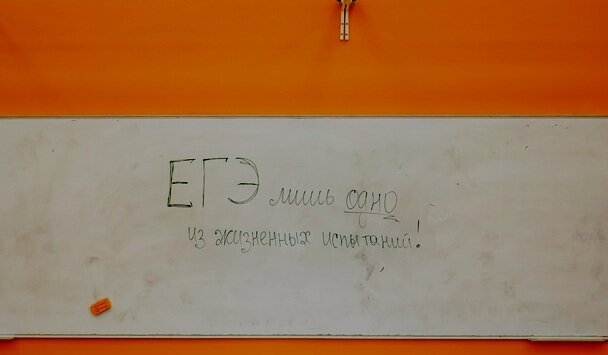 ЕГЭ лишь одно
из жизненных испытаний!